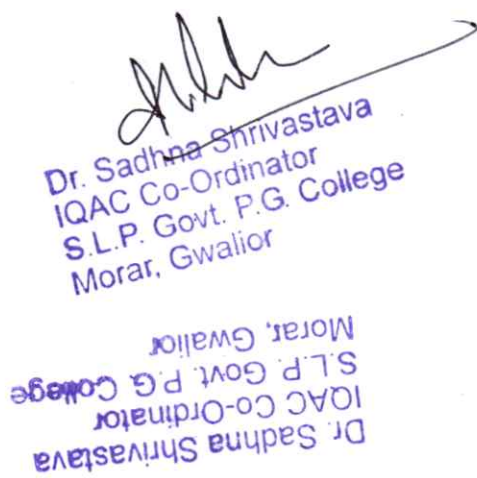 Dr. Sadhna Shrivastava
IQAC Co-Ordinator
S.L.P. Govt. P.G. College
Morar, Gwalior
Dr. Sadhna Shrivastava
IQAC Co-Ordinator
S.L.P. Govt. P.G. College
Morar, Gwalior